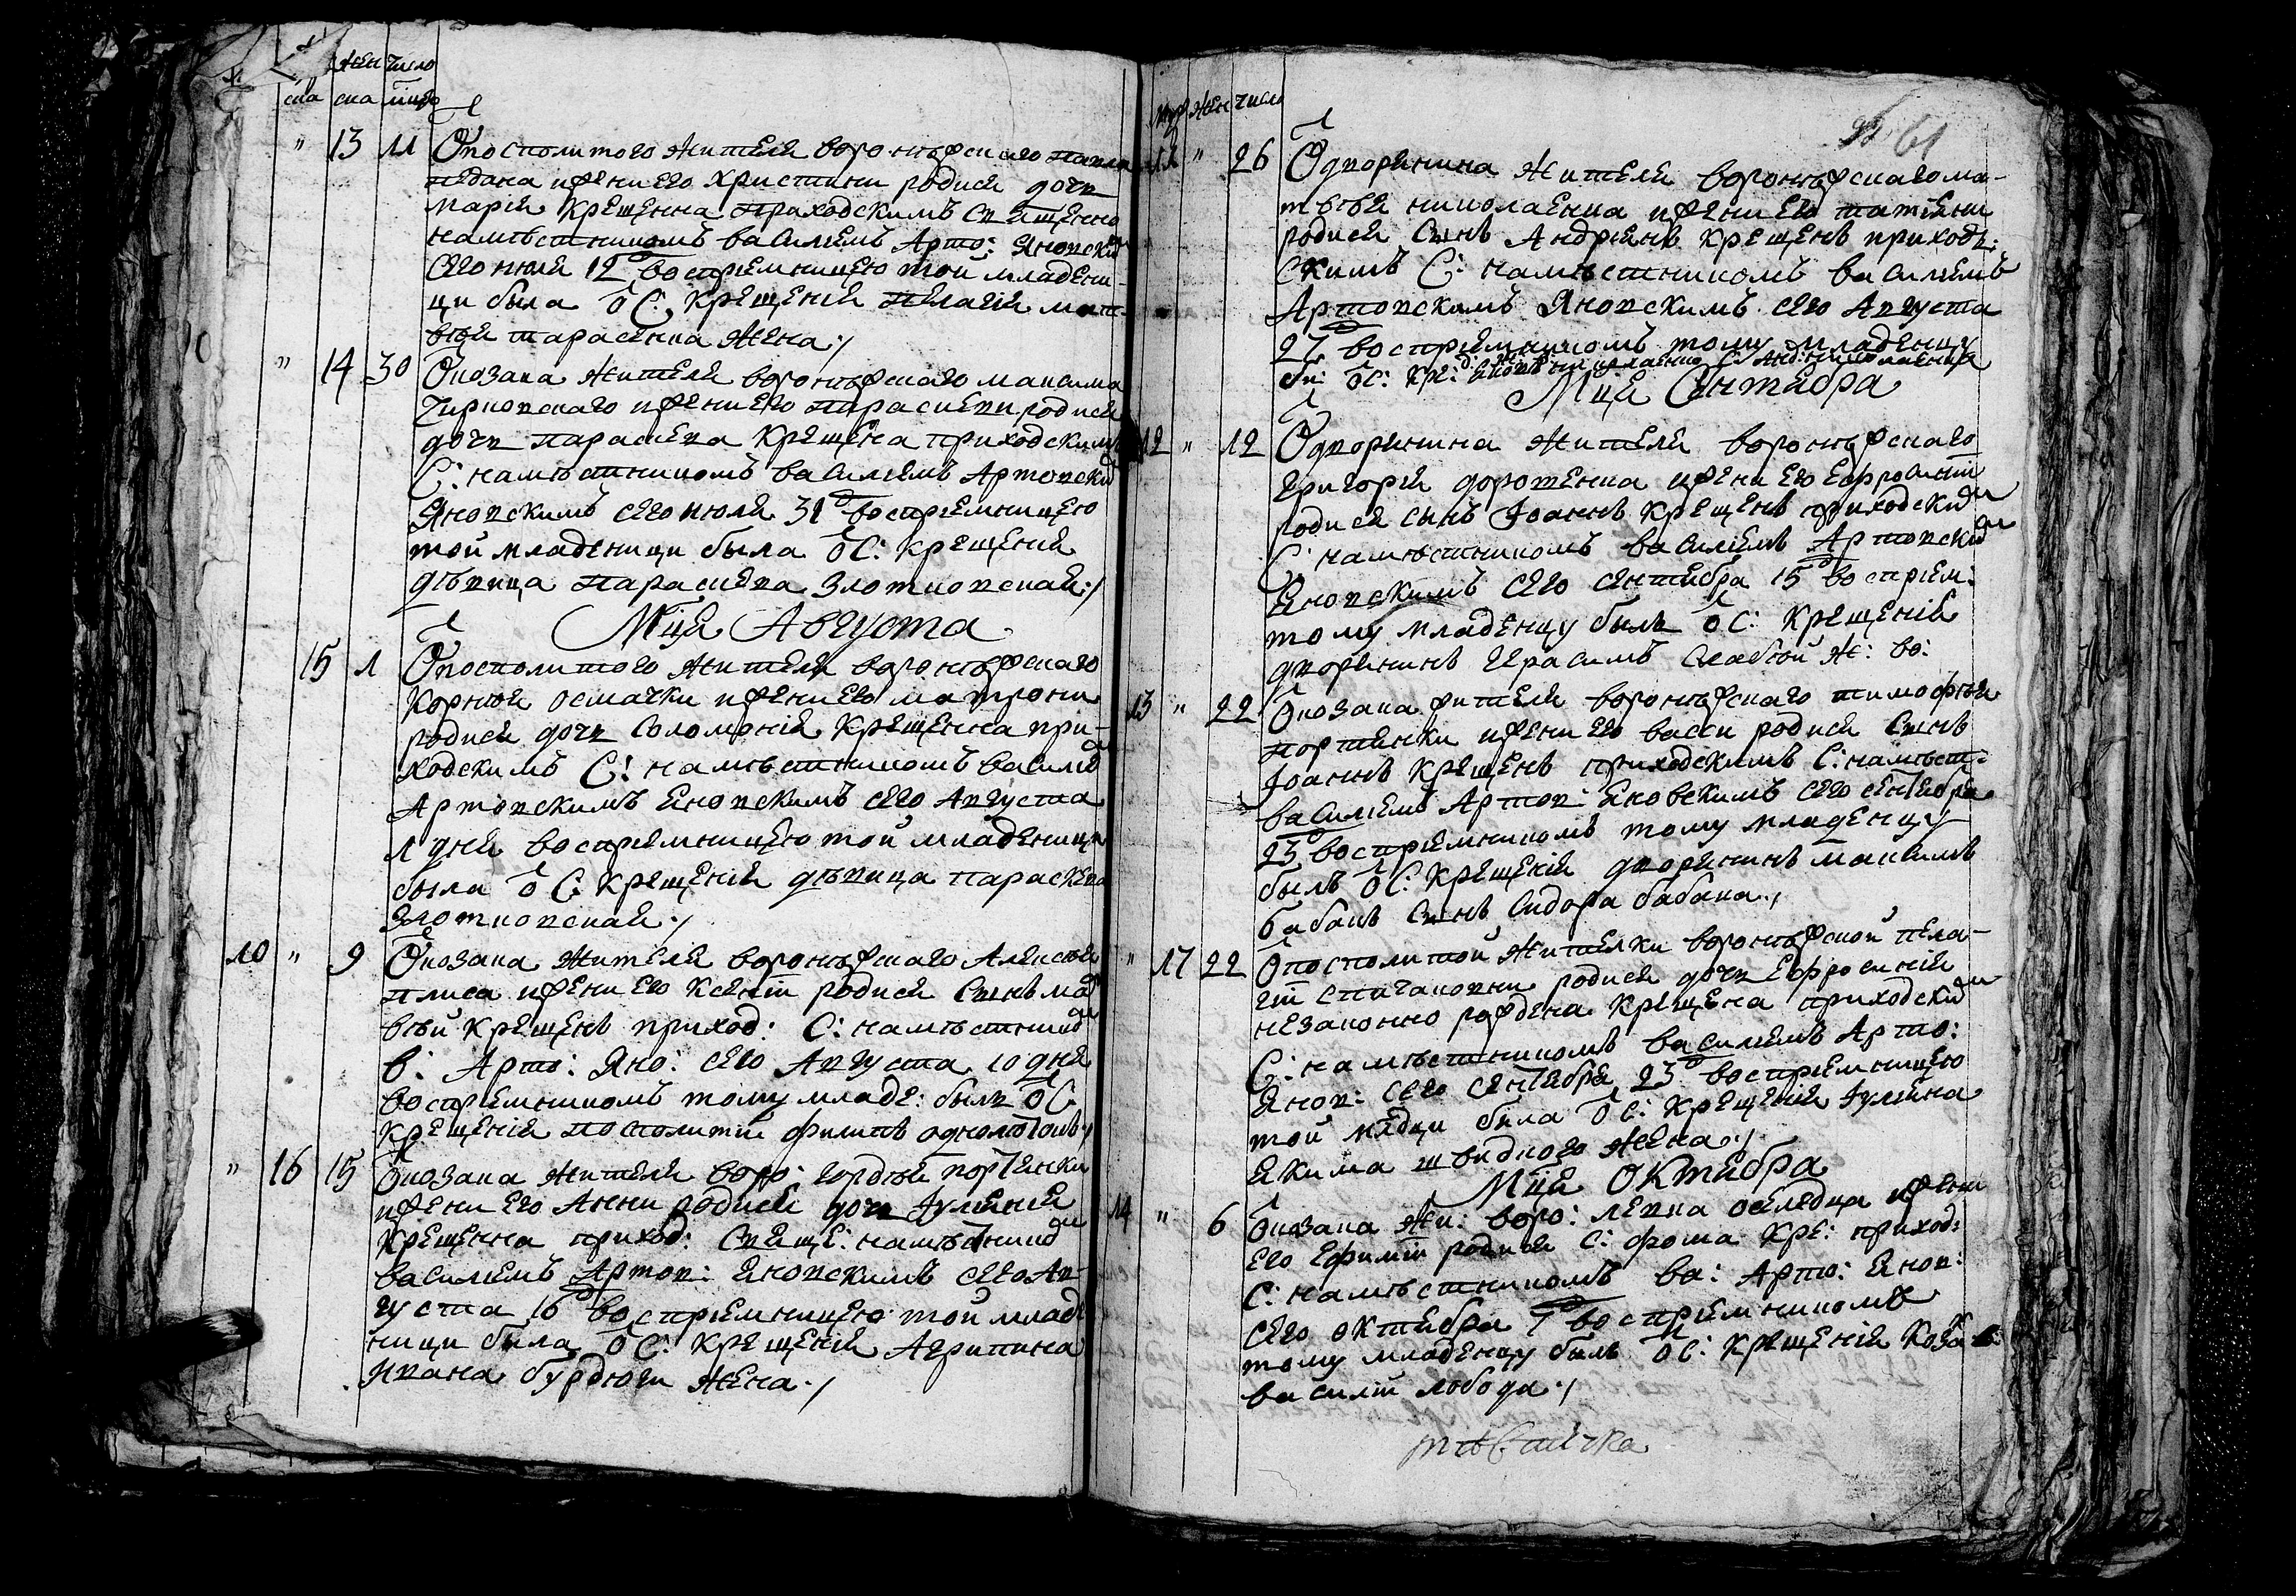 жен число
ска ска
" 13 11 У посполитого жителя воронѣжскаго павла
педана и жени его христини родися дочь
марія крещенна приходскимъ священно
намѣстникомъ василіемъ Арто: Яновски
сего июля 12 д воспріемницею той младени-
ци была от С: крещенія пелагія мат-
вѣя тарасенка жена ./
" 14 30 У козака жителя воронѣжскаго максима
Чирковскаго и жени его параскеви родися
дочь параскева крещена приходскимъ
С: намѣстникомъ василіемъ Артовски
Яновскимъ сего июля 31 д воспріемницею
той младеници была от С: крещенія
дѣвица параскева Злотковская ./
Мця Августа
15 1 У посполитого жителя воронѣжскаго
Корнѣя осмачки и жени его матрони
родися дочь Соломонія крещенна при-
ходскимъ С: намѣстникомъ василіе
Артовскимъ Яновскимъ сего Августа
1 дня воспріемницею той младеници
была от С: крещенія дѣвица параскева
злотковская ./
10 " 9 У козака жителя воронѣжскаго Алексѣя
плиса и жени его Ксеніи родися Синъ мат
вѣй крещенъ приход: С: намѣстнико
в: Арто: Яно: сего Августа 10 дня
воспріемникомъ тому младе: былъ от С
крещенія посполитій филипъ
" 16 15 У козака жителя воро: гордѣя порТянки
и жени его Анни родися дочь Іуліянія
крещенна приход: Свяще: намѣстнико
василіемъ Артов: Яновскимъ сего Ав-
густа 16 д воспріемницею той младе
ници была от С: крещенія Агрипина
Ивана бурдюги жена ./
муж жен число
61
11 " 26 У дворянина жителя воронѣжскагома-
твѣя николаенка и жени его татіяни
родися Синъ Андріянъ крещенъ приход:
скимъ С: намѣстникомъ василіемъ
Артовскимъ Яновскимъ сего Августа
27 д воспріемникомъ тому младенцу
би: от С: кре:
Мця Сентября
12 " 12 У дворянина жителя воронѣжскаго
григорія дорошенка и жени его Ефросиніи
родися сынъ Іоаннъ крещенъ приходски
С: намѣстникомъ василіемъ Артовски
Яновскимъ сего сентября 15 д воспріем:
тому младенцу былъ от С: крещенія
дворянинъ герасимъ Слабѣй ж: во:
13 " 22 У козака жителя воронѣжскаго тимофѣя
портянки и жени его васси родися Синъ
Іоаннъ крещенъ приходскимъ С: намѣст-
василіемъ Артов: Яновскимъ сего сентября
23 д воспріемникомъ тому младенцу
былъ от С: крещенія дворянинъ максимъ
бабанъ Синъ Сидора бабана ./
" 17 22 У посполитой жителки воронѣжской пела-
гіи родися дочь Ефросинія
незаконно рождена крещена приходски
С: намѣстникомъ василіемъ Арто:
Янов: сего сентября 23 д воспріемницею
той мл̃дци била от С: крещенія Іуліяна
Якима швидкого жена ./
Мця Октября
14 " 6 У козака жи: воро: левка оселедца и жени
его Ефиміи родися С: фома кре: приход:
С: намѣстникомъ ва: Арто: Янов:
сего октября 7 д воспріемникомъ
тому младенцу былъ от С: крещенія коза:
василій лобода ./